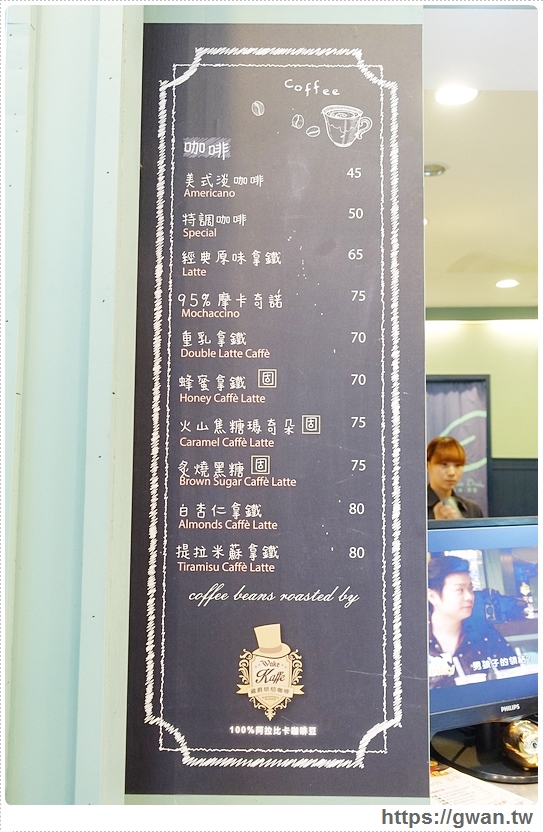 Coffee
咖啡
美式淡咖啡 45
Americano
特調咖啡 50
Special
經典原味拿鐵 65
Latte
95%摩卡奇諾 75
Mochaccino
重乳拿鐵 70
Double Latte Caffè
蜂蜜拿鐵 固 70
Honey Caffè Latte
火山焦糖瑪奇朵 固 75
Caramel Caffè Latte
炙燒黑糖 固 75
Brown Sugar Caffè Latte
白杏仁拿鐵 80
Almonds Caffè Latte
提拉米蘇拿鐵 80
Tiramisu Caffè Latte
coffee beans roasted by
Kaffe
爵烘焙咖啡
100%阿拉比卡咖啡豆
男孩子的領
PHILIPS
https://gwan.tw